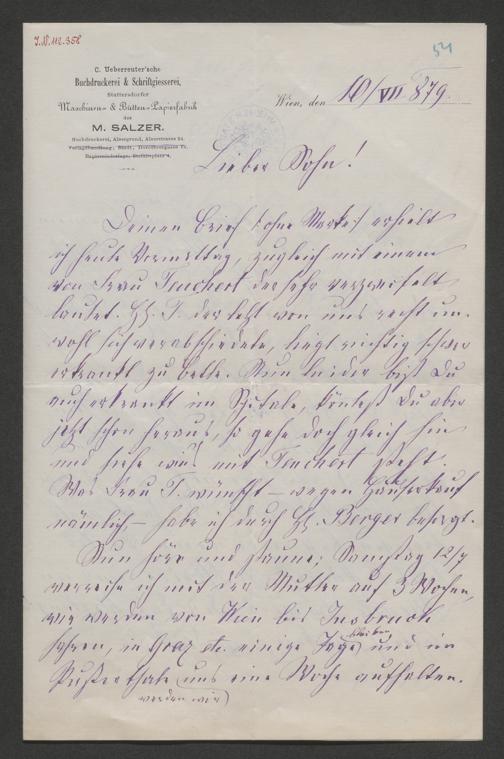 J.N. 112.358
54
C. Ueberreuter'sche
Buchdruckerei & Schriftgiesserei,
Stattersdorfer
Maschinen- & Bütten-Papierfabrik
des
M. SALZER.
Buchdruckerei, Alsergrund, Alserstrasse 24.
Wien, den 10/VII 879.
Lieber Sohn!
Deinen Brief (:ohne Marke:) erhielt
ich heute Vormittag, zugleich mit einem
von Frau Teuchert der sehr verzweifelt
lautet. H. T. der letzt von uns recht un-
wohl sich verabschiedete, liegt richtig schwer
erkrankt zu Bette. Nun leider bist Du
auch erkrankt im Spitale, köntest Du aber
jetzt schon heraus, so gehe doch gleich hin
und siehe wie's mit Teuchert steht.
Was Frau T. wünscht – wegen Häuserkauf
nämlich – habe ich durch H. Berger besorgt.
Nun höre und staune; Samstag 12/7
verreise ich mit der Mutter auf 3 Wochen,
wir werden von Wien bis Insbruck
fahren, in Graz etc. einige Tage bleiben und im
Pusterthale uns eine Woche aufhalten.
werden wir